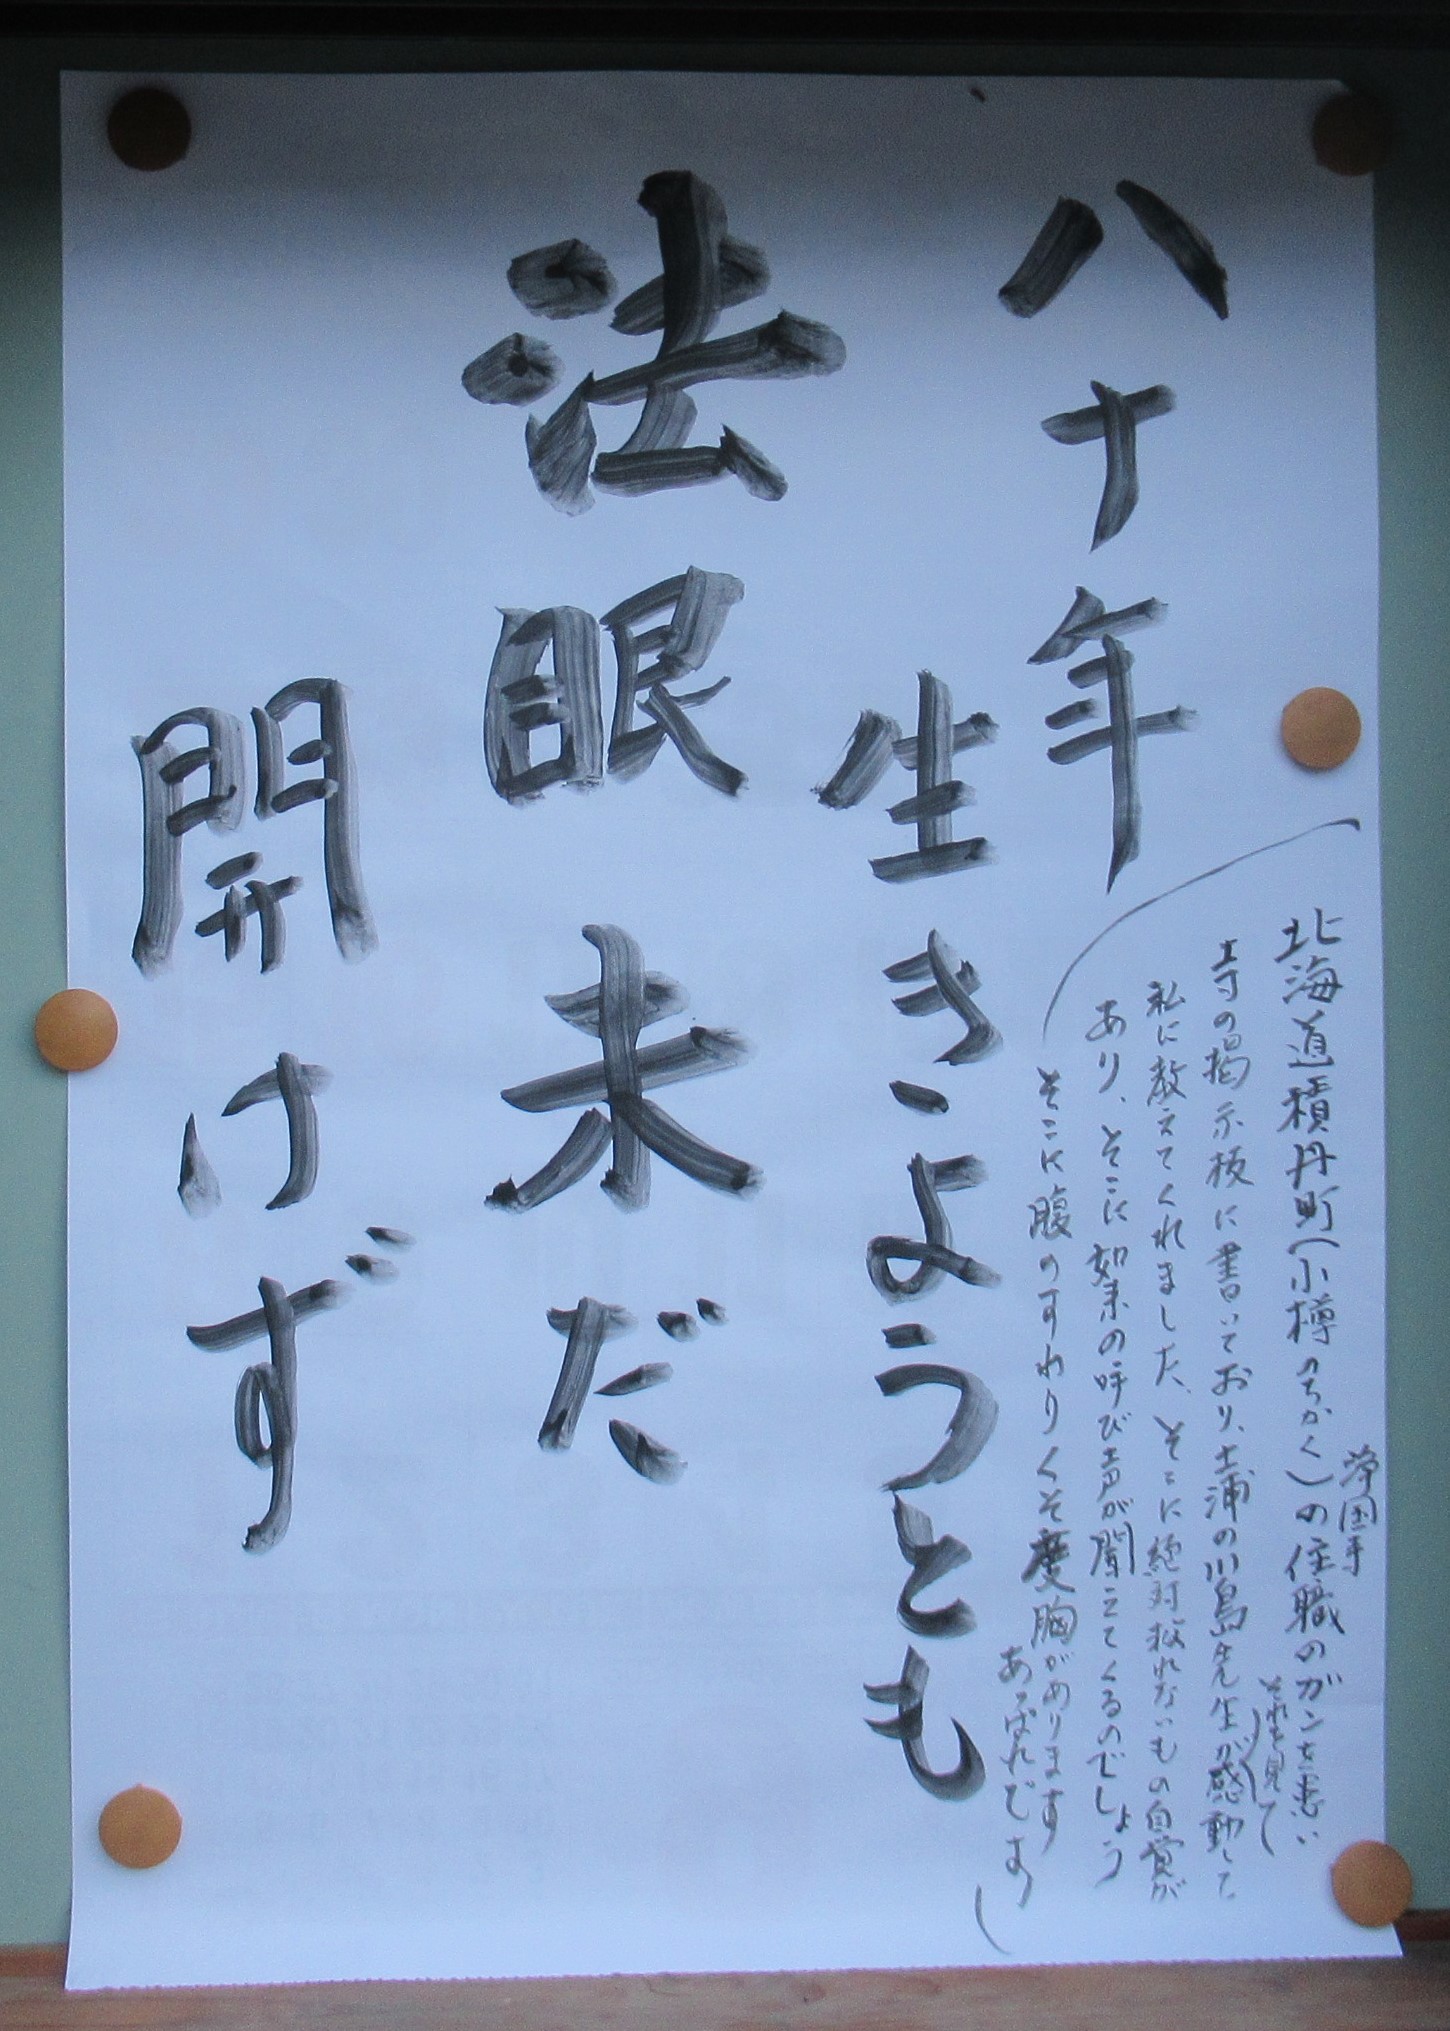 八十年
生きようとも
法眼未だ
開けず
浄国寺
北海道積丹町(小樽のちかく)の住職のガンを患い
それを見て
寺の掲示板に書いており、土浦の川島先生が感動して
私に教えてくれました、そこに絶対救れないもの自覚が
あり、そこに如来の呼び声が聞えてくるのでしょう
そこに腹のすわりくそ度胸があります
あっぱれです